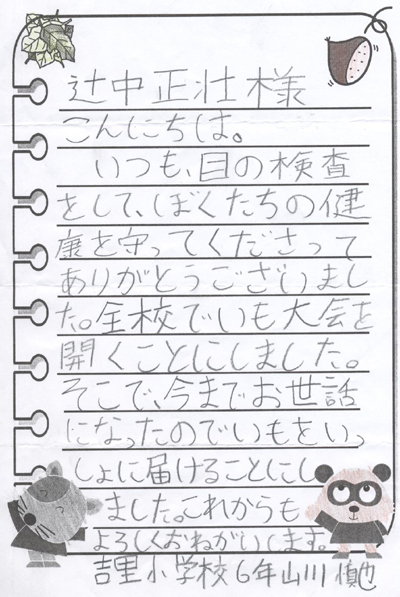 辻中正壮様
こんにちは。
いつも、目の検査
をして、ぼくたちの健
康を守ってくださって
ありがとうございまし
た。全校でいも大会を
開くことにしました。
そこで、今までお世話
になったのでいもをいっ
しょに届けることにし
ました。これからも
よろしくおねがいします。
吉里小学校6年山川慎也